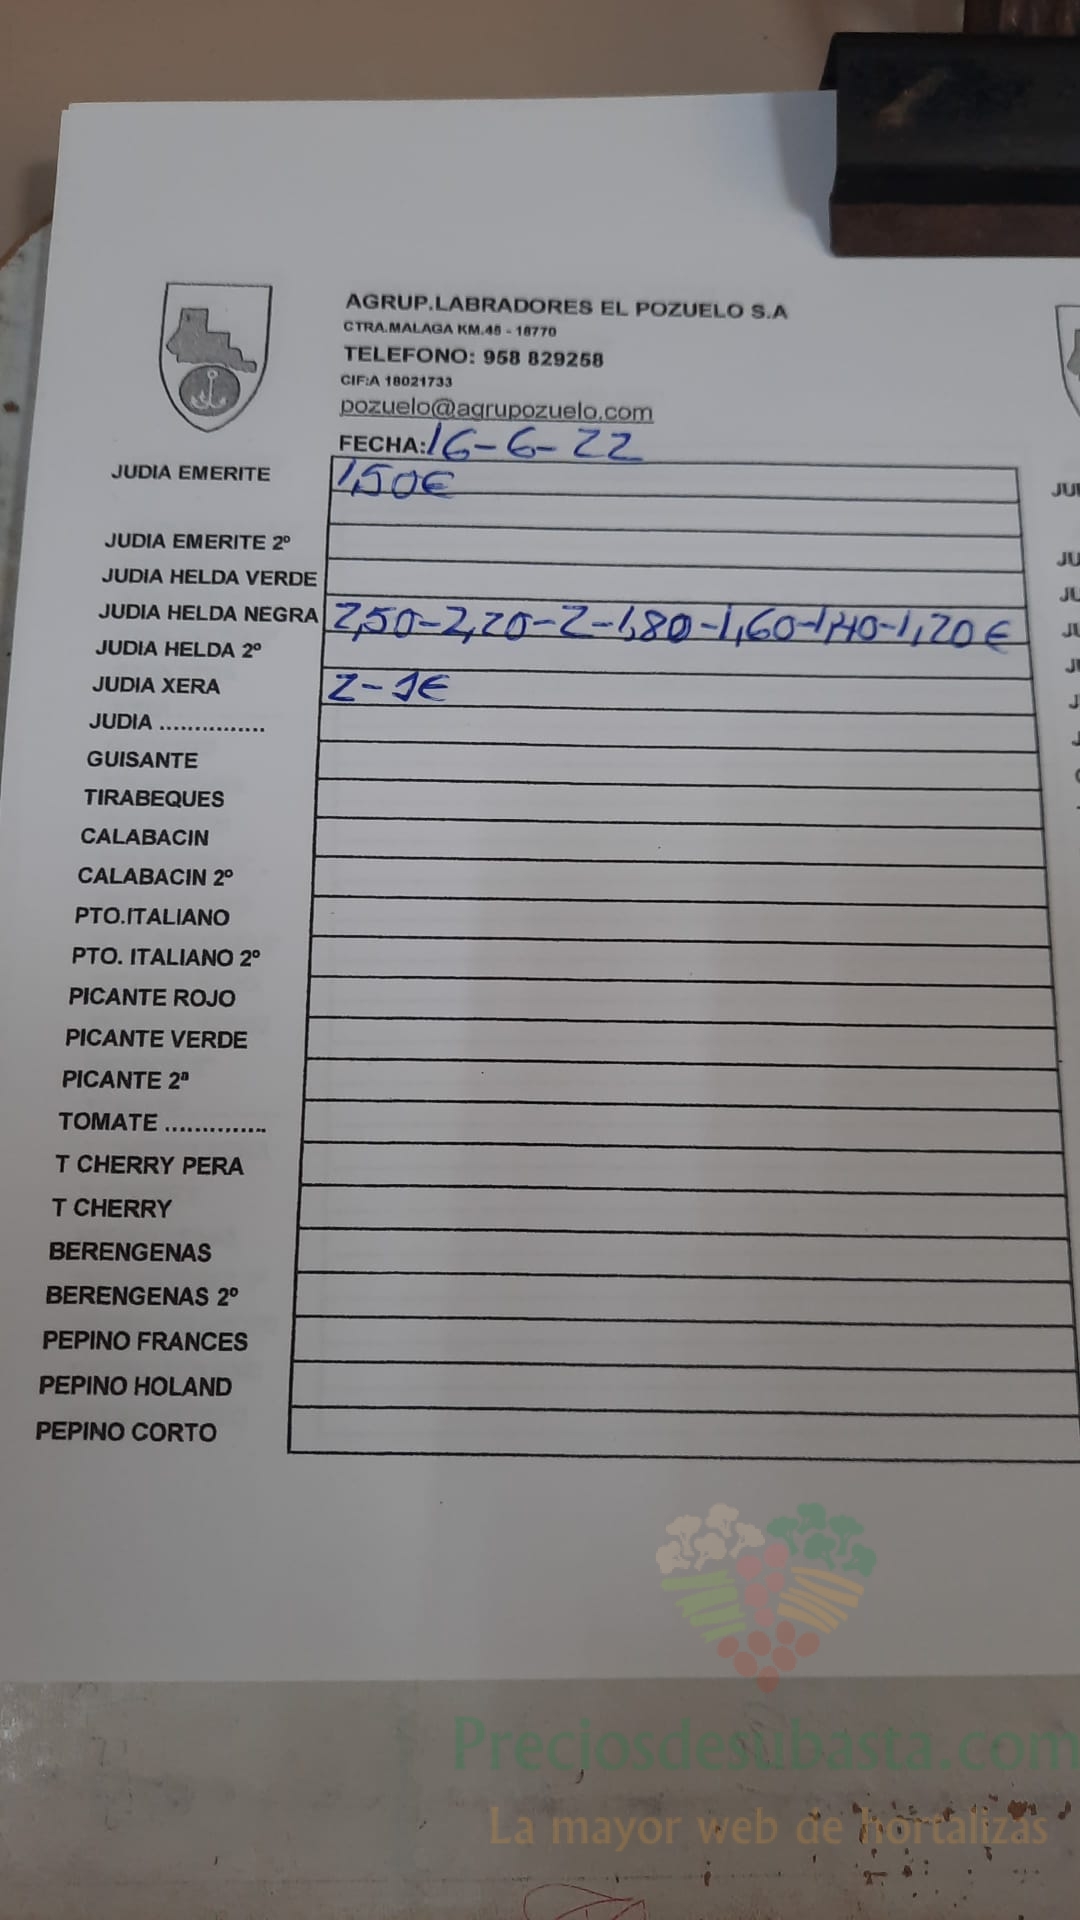 AGRUP.LABRADORES EL POZUELO S.A
CTRA.MALAGA KM.45 - 18770
TELEFONO: 958 829258
CIF:A 18021733
pozuelo@agrupozuelo.com
FECHA: 16-6-22
JUDIA EMERITE 1,50€
JUDIA EMERITE 2º
JUDIA HELDA VERDE
JUDIA HELDA NEGRA 2,50-2,20-2-1,80-1,60-1,40-1,20€
JUDIA HELDA 2º
JUDIA XERA 2-1€
JUDIA ...............
GUISANTE
TIRABEQUES
CALABACIN
CALABACIN 2º
PTO.ITALIANO
PTO. ITALIANO 2º
PICANTE ROJO
PICANTE VERDE
PICANTE 2ª
TOMATE ..............
T CHERRY PERA
T CHERRY
BERENGENAS
BERENGENAS 2º
PEPINO FRANCES
PEPINO HOLAND
PEPINO CORTO
Preciosdesubasta.com
La mayor web de hortalizas